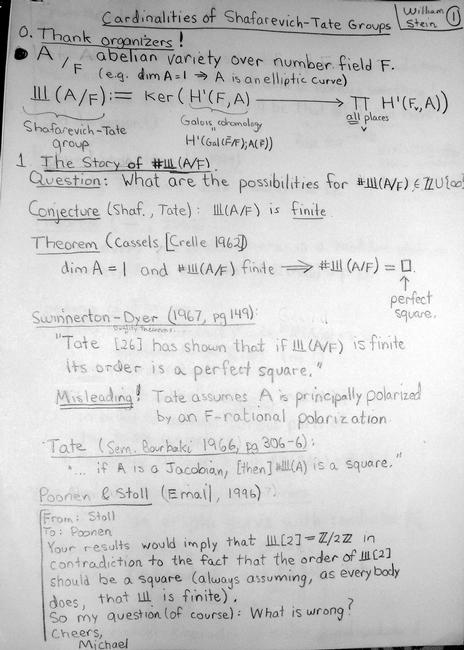 Cardinalities of Shafarevich-Tate Groups
William Stein 1
0. Thank organizers!
A/F abelian variety over number field F.
(e.g. dim A=1 ⇒ A is an elliptic curve)
Ш(A/F) := Ker(H¹(F,A) → ∏ H¹(Fᵥ,A))
all places v
Shafarevich-Tate group
Galois cohomology
H¹(Gal(F̄/F);A(F̄))
1. The Story of #Ш(A/F)
Question: What are the possibilities for #Ш(A/F) ∈ ℤ∪{∞}
Conjecture (Shaf., Tate): Ш(A/F) is finite.
Theorem (Cassels, [Crelle 1962])
dim A = 1 and #Ш(A/F) finite ⟹ #Ш(A/F) = □.
↑
perfect square.
Swinnerton-Dyer (1967, pg 149):
Duality Theorems
"Tate [26] has shown that if Ш(A/F) is finite
its order is a perfect square."
Misleading! Tate assumes A is principally polarized
by an F-rational polarization
Tate (Sem. Bourbaki 1966, pg 306-6):
"... if A is a Jacobian, [then] #Ш(A) is a square."
Poonen & Stoll (Email, 1996):
From: Stoll
To: Poonen
Your results would imply that Ш[2] = ℤ/2ℤ in
contradiction to the fact that the order of Ш[2]
should be a square (always assuming, as everybody
does, that Ш is finite).
So my question (of course): What is wrong?
Cheers,
Michael